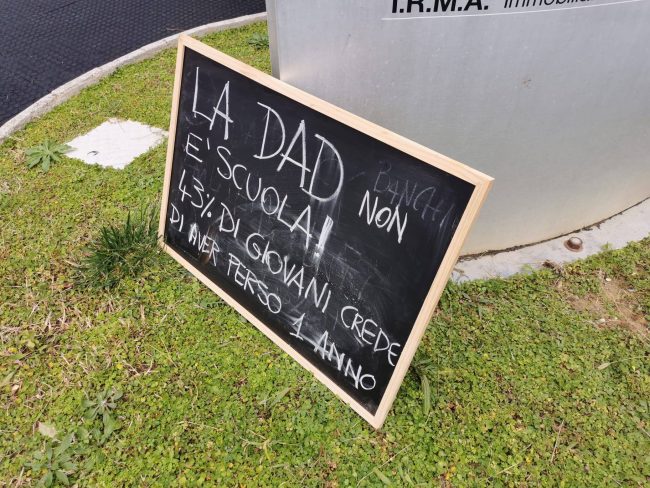 I.R.M.A.
LA DAD NON
E' SCUOLA!
43% DI GIOVANI CREDE
DI AVER PERSO 1 ANNO